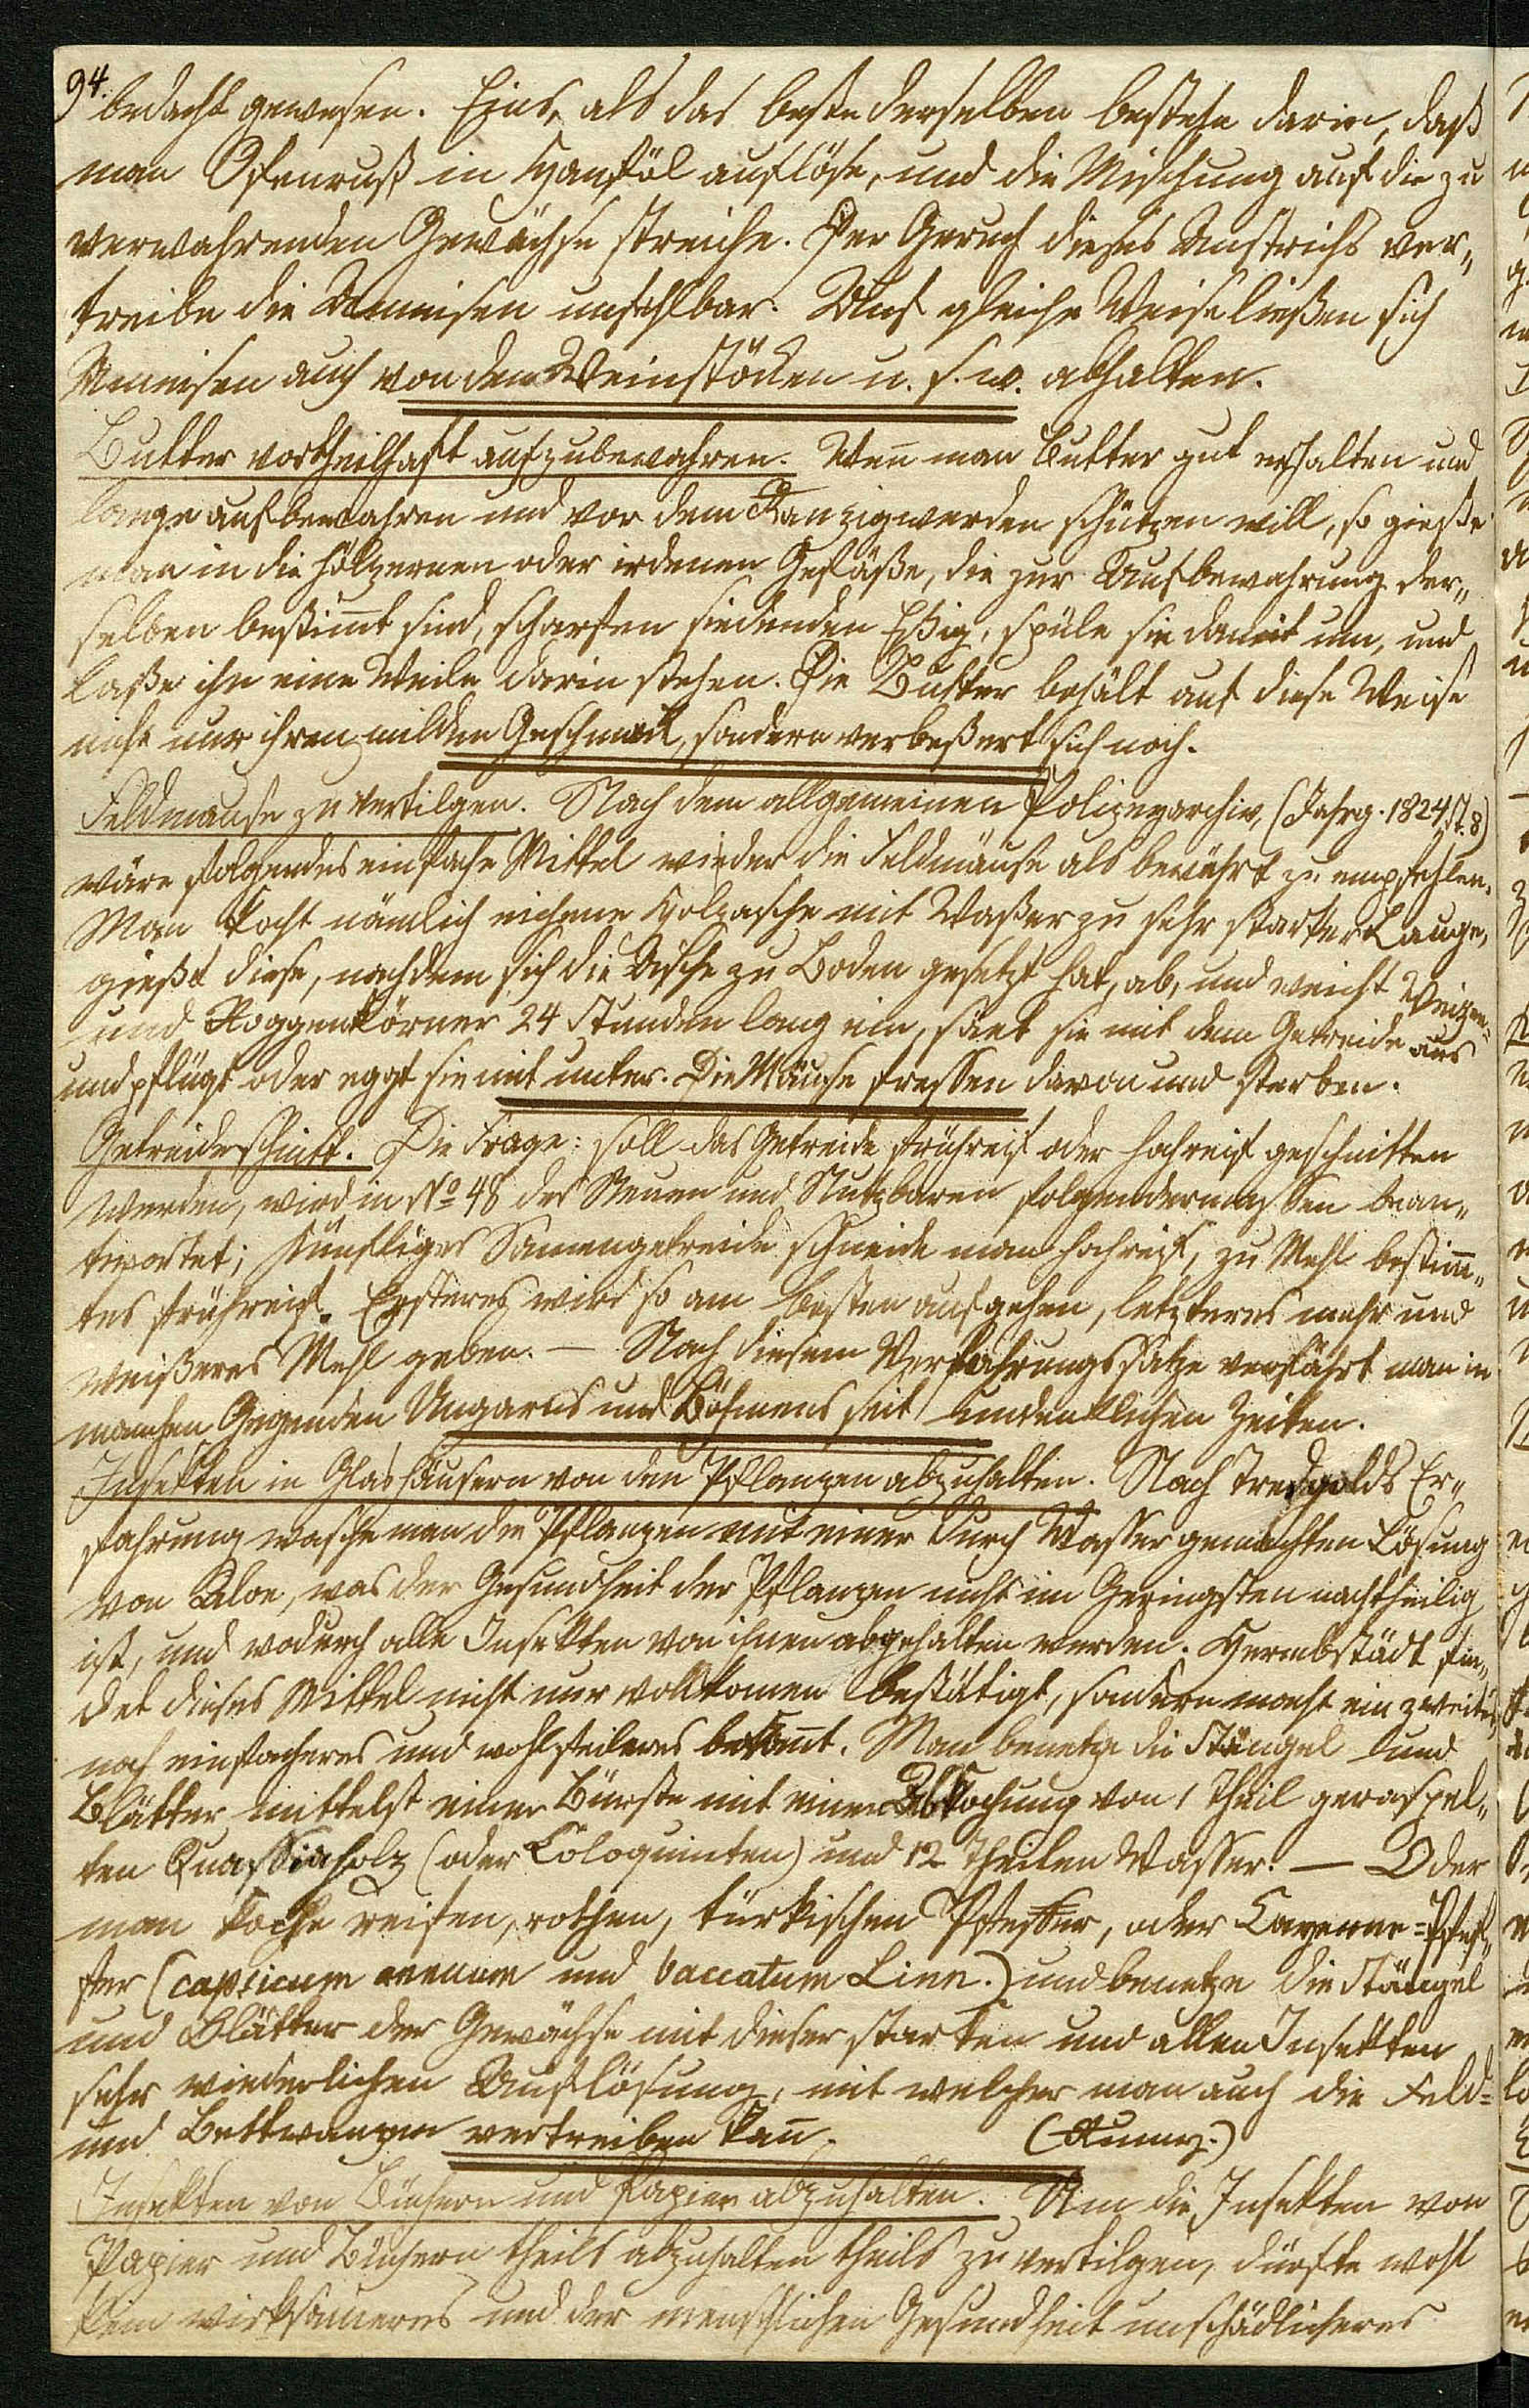 94.
bedacht gewesen. Eins, als das beste derselben bestehe darin, daß
man Ofenruß in Hanföl auflöse, und die Mischung auf die zu
verwahrenden Gewächse streiche. Der Geruch dieses Anstrichs ver„
treibe die Ameisen unfehlbar. Auf gleiche Weise ließen sich
Ameisen auch von den Weinstöcken u. s. w. abhalten.
Butter vortheilhaft aufzubewahren. Wen̄ man Butter gut erhalten und
lange aufbewahren und vor dem Ranzigwerden schützen will, so gieße
man in die hölzernen oder irdenen Gefäße, die zur Aufbewahrung der„
selben bestim̄t sind, scharfen siedenden Eßig, spüle sie damit um, und
laße ihn eine Weile darin stehen. Die Butter behält auf diese Weise
nicht nur ihren milden Geschmack, sondern verbeßert sich noch.
Feldmäuse zu vertilgen. Nach dem allgemeinen Polizeyarchiv, (Jahrg. 1824, N. 8)
wäre folgendes einfache Mittel wieder die Feldmäuse als bewährt zu empfehlen.
Man kocht nämlich eichene Holzasche mit Waßer zu sehr starker Lauge,
gießt diese, nachdem sich die Asche zu Boden gesetzt hat, ab, und weicht Weizen-
und Roggenkörner 24 Stunden lang ein, säet sie mit dem Getreide aus
und pflügt oder eggt sie mit unter. Die Mäuse fressen davon und sterben.
Getreideschnitt. Die Frage: soll das Getreide frühreif oder hochreif geschnitten
werden, wird in No 48 des Neuen und Nutzbaren folgendermassen bean„
twortet; Künftiges Samengetreide schneide man hochreif, zu Mehl bestim̄„
tes frühreif. Ersteres wird so am besten aufgehen, letzteres mehr und
weißeres Mehl geben. — Nach diesem Verfahrungssatze verfährt man in
manchen Gegenden Ungarns und Böhmens seit undenklichen Zeiten.
Insekten in Glashäusern von den Pflanzen abzuhalten. Nach Tredgolds Er„
fahrung wasche man die Pflanzen mit einer durch Wasser gemachten Lösung
von Aloe, was der Gesundheit der Pflanzen nicht im Geringsten nachtheilig
ist, und wodurch alle Insekten von ihnen abgehalten werden. Hermbstädt fin„
det dieses Mittel nicht nur vollkomen bestätigt, sondern macht ein zweites,
noch einfacheres und wohlfeileres bekan̄t. Man benetze die Stängel und
Blätter mittelst einer Bürste mit einer Abkochung von 1 Theil geraspel„
ten Quassiaholz (oder Coloquinten) und 12 Theilen Wasser. — Oder
man koche reifen, rothen, türkischen Pfeffer, oder Cayenne-Pfef„
fer (capsicum annuum und baccatum Linn.) und benetze die Stängel
und Blätter der Gewächse mit dieser starken und allen Insekten
sehr wiederlichen Auflösung, mit welcher man auch die Feld-
und Bettwanzen vertreiben kan̄. (Rumy.)
Insekten von Büchern und Papier abzuhalten. Um die Insekten von
Papier und Büchern theils abzuhalten theils zu vertilgen, dürfte wohl
kein wirksameres und der menschlichen Gesundheit unschädlicheres